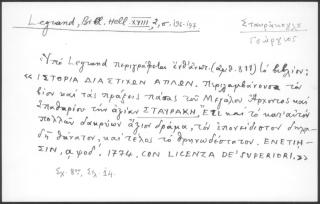 Legrand, Bibl. Hell. XVIII, 2, σ. 196-197
Σταυράκογλου
Γεώργιος
Ὑπὸ Legrand περιγράφεται ἐνθ' ἀνωτ. (ἀριθ. 811) τὸ βιβλίον:
« ΙΣΤΟΡΙΑ ΔΙΑ ΣΤΙΧΩΝ ΑΠΛΩΝ. Περιλαμβάνουσα τὸν
βίον καὶ τὰς πράξεις πάσας τοῦ Μεγάλου Ἄρχοντος καὶ
Σπαθαρίου τῶν ἁγίων ΣΤΑΥΡΑΚΗ, Ἔτι καὶ τὸ κατ' αὐτὸν
πολλῶν δακρύων ἄξιον δρᾶμα, τὸν ἐπονείδιστον δηλα-
δὴ θάνατον, καὶ τέλος τὸ θρηνωδέστατον. ΕΝΕΤΙΗ-
ΣΙΝ, αψοδ'. 1774. CON LICENZA DE' SUPERIORI.»
Σχ. 8ον, Σελ. 14.